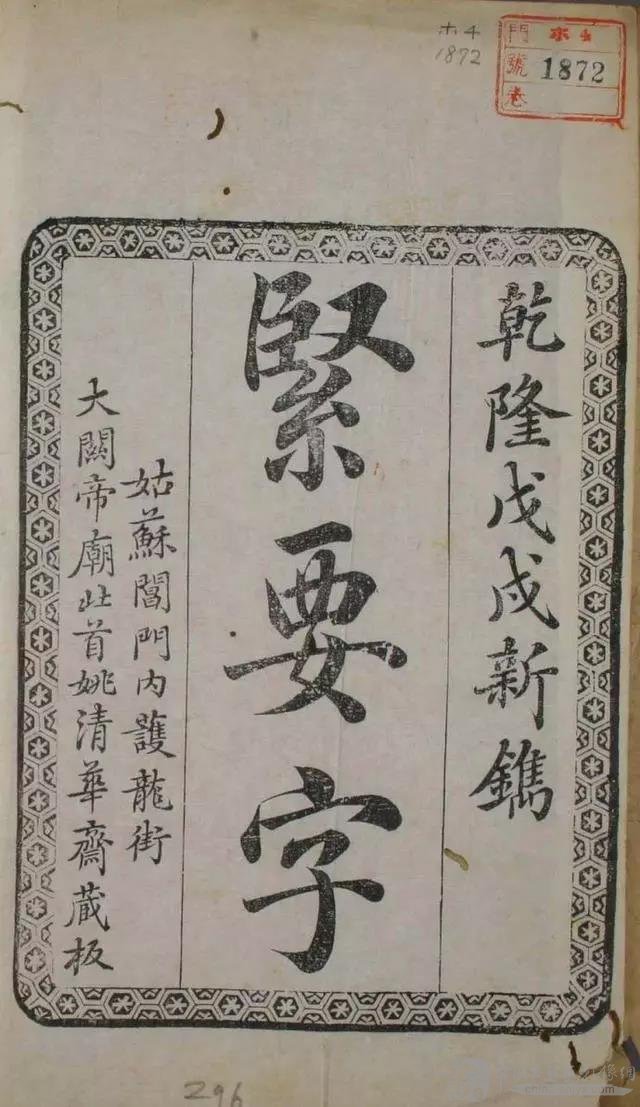 ホ4
1872
門 ホ4
號 1872
卷
乾隆戊戌新鐫
緊要字
姑蘇閶門內護龍街
大關帝廟北首姚清華齋藏板
296